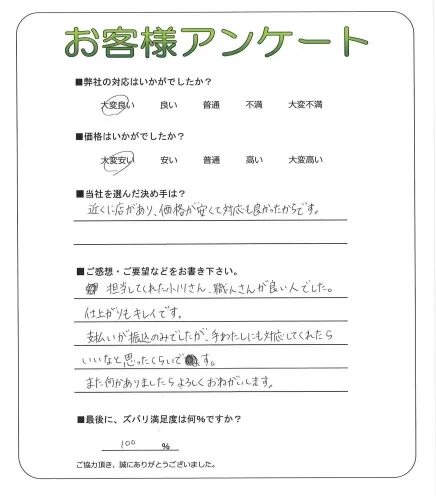 お客様アンケート
■弊社の対応はいかがでしたか?
大変良い 良い 普通 不満 大変不満
■価格はいかがでしたか?
大変安い 安い 普通 高い 大変高い
■当社を選んだ決め手は?
近くに店があり、価格が安くて対応も良かったからです。
■ご感想・ご要望などをお書き下さい。
担当してくれた小川さん、職人さんが良い人でした。
仕上がりもキレイです。
支払いが振込のみでしたが、手わたしにも対応してくれたら
いいなと思ったくらいです。
また何かありましたらよろしくおねがいします。
■最後に、ズバリ満足度は何%ですか?
100 %
ご協力頂き、誠にありがとうございました。